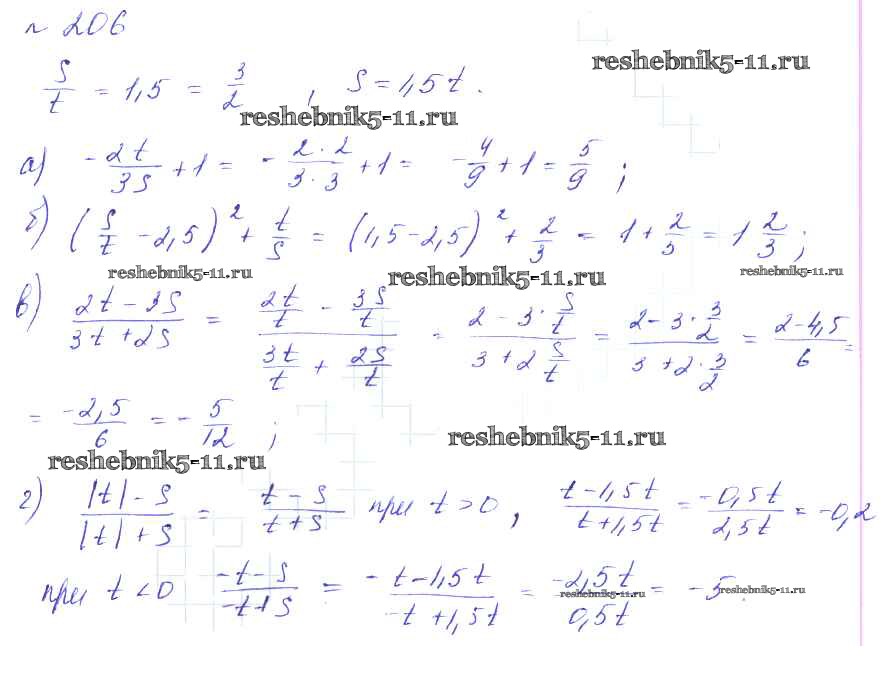 № 206
reshebnik5-11.ru
S/t = 1,5 = 3/2 , S = 1,5t.
reshebnik5-11.ru
а) -2t/3S + 1 = - 2·2/3·3 + 1 = -4/9 + 1 = 5/9 ;
б) (S/t - 2,5)² + t/S = (1,5 - 2,5)² + 2/3 = 1 + 2/3 = 1 2/3 ;
reshebnik5-11.ru reshebnik5-11.ru reshebnik5-11.ru
в) (2t - 3S)/(3t + 2S) = (2t/t - 3S/t)/(3t/t + 2S/t) = (2 - 3·S/t)/(3 + 2 S/t) = (2 - 3·3/2)/(3 + 2·3/2) = (2 - 4,5)/6 =
= -2,5/6 = - 5/12 ;
reshebnik5-11.ru reshebnik5-11.ru
г) (|t| - S)/(|t| + S) = (t - S)/(t + S) при t > 0 , (t - 1,5t)/(t + 1,5t) = -0,5t/2,5t = -0,2
при t < 0 (-t - S)/(-t + S) = (-t - 1,5t)/(-t + 1,5t) = -2,5t/0,5t = -5.
reshebnik5-11.ru reshebnik5-11.ru